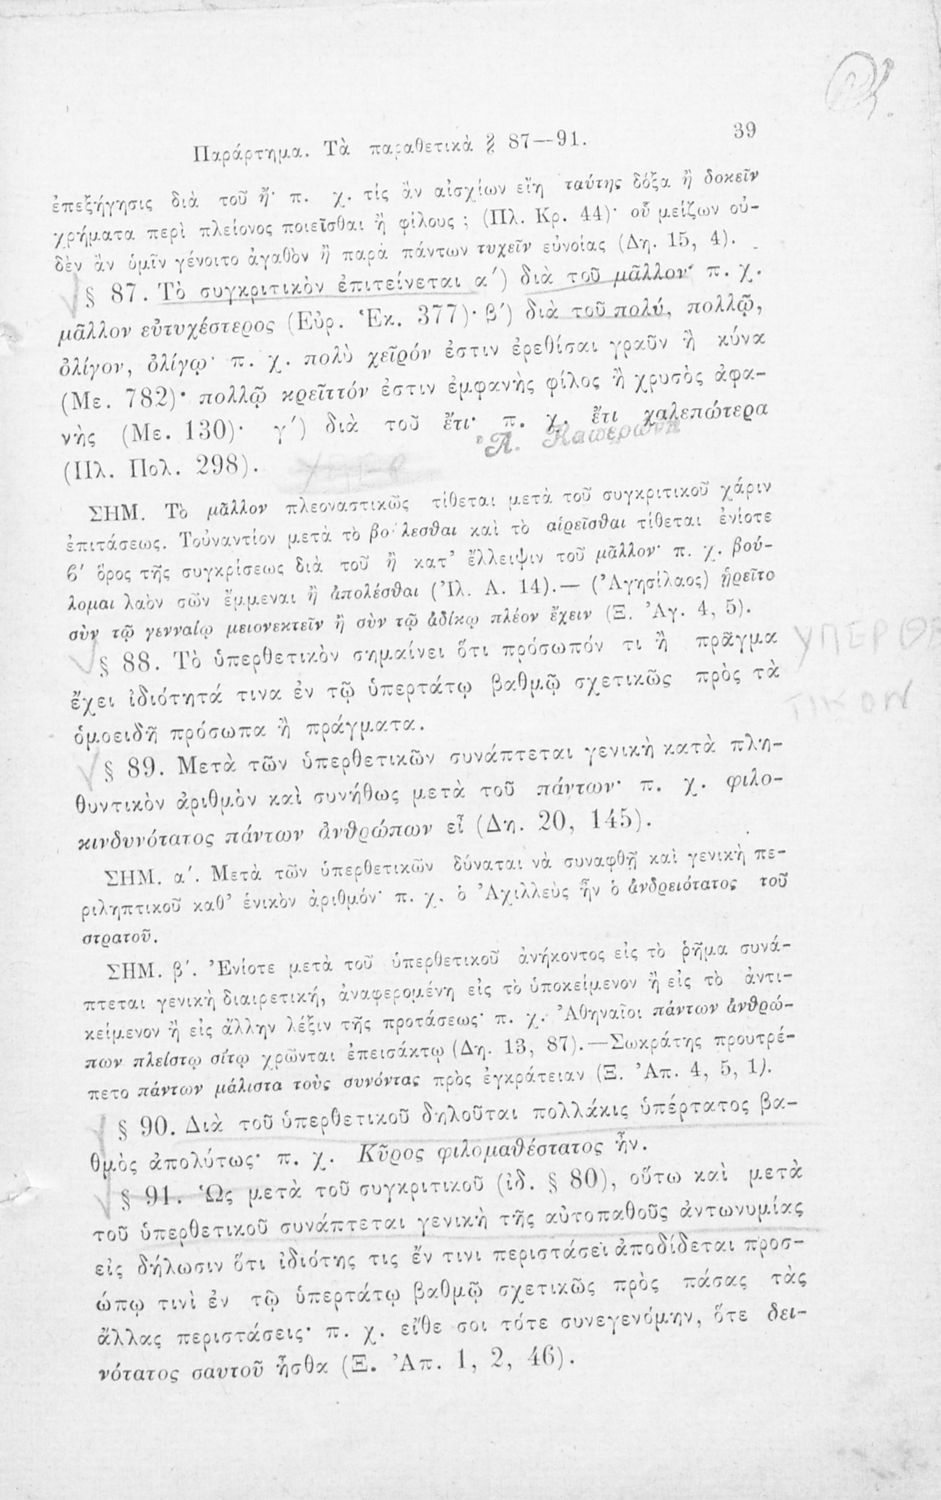 Παράρτημα. Τὰ παραθετικὰ § 87—91.
39
ἐπεξήγησις διὰ τοῦ ἤ· π. χ. τίς ἂν αἰσχίων εἴη ταύτης δόξα ἢ δοκεῖν
χρήματα περὶ πλείονος ποιεῖσθαι ἢ φίλους ; (Πλ. Κρ. 44)· οὗ μείζων οὐ-
δὲν ἂν ὑμῖν γένοιτο ἀγαθὸν ἢ παρὰ πάντων τυχεῖν εὐνοίας (Δη. 15, 4).
§ 87. Τὸ συγκριτικὸν ἐπιτείνεται α΄) διὰ τοῦ μᾶλλον· π. χ.
μᾶλλον εὐτυχέστερος (Εὐρ. Ἑκ. 377)· β΄) διὰ τοῦ πολύ, πολλῷ,
ὀλίγον, ὀλίγῳ· π. χ. πολὺ χεῖρόν ἐστιν ἐρεθίσαι γραῦν ἢ κύνα
(Με. 782)· πολλῷ κρεῖττόν ἐστιν ἐμφανὴς φίλος ἢ χρυσὸς ἀφα-
νὴς (Με. 130)· γ΄) διὰ τοῦ ἔτι· π. χ. ἔτι χαλεπώτερα
(Πλ. Πολ. 298).
ΥΠΕΡ
ΣΗΜ. Τὸ μᾶλλον πλεοναστικῶς τίθεται μετὰ τοῦ συγκριτικοῦ χάριν
ἐπιτάσεως. Τοὐναντίον μετὰ τὸ βούλεσθαι καὶ τὸ αἱρεῖσθαι τίθεται ἐνίοτε
β΄ ὅρος τῆς συγκρίσεως διὰ τοῦ ἢ κατ' ἔλλειψιν τοῦ μᾶλλον· π. χ. βού-
λομαι λαὸν σῶν ἔμμεναι ἢ ἀπολέσθαι (Ἰλ. Α. 14).— (Ἀγησίλαος) ᾑρεῖτο
σὺν τῷ γενναίῳ μειονεκτεῖν ἢ σὺν τῷ ἀδίκῳ πλέον ἔχειν (Ξ. Ἀγ. 4, 5).
§ 88. Τὸ ὑπερθετικὸν σημαίνει ὅτι πρόσωπόν τι ἢ πρᾶγμα
ΥΠΕΡΘΕ
ἔχει ἰδιότητά τινα ἐν τῷ ὑπερτάτῳ βαθμῷ σχετικῶς πρὸς τὰ
ΤΙΚΟΝ
ὁμοειδῆ πρόσωπα ἢ πράγματα.
§ 89. Μετὰ τῶν ὑπερθετικῶν συνάπτεται γενικὴ κατὰ πλη-
θυντικὸν ἀριθμὸν καὶ συνήθως μετὰ τοῦ πάντων· π. χ. φιλο-
κινδυνότατος πάντων ἀνθρώπων εἶ (Δη. 20, 145).
ΣΗΜ. α΄. Μετὰ τῶν ὑπερθετικῶν δύναται νὰ συναφθῇ καὶ γενικὴ πε-
ριληπτικοῦ καθ' ἑνικὸν ἀριθμόν· π. χ. ὁ Ἀχιλλεὺς ἦν ὁ ἀνδρειότατος τοῦ
στρατοῦ.
ΣΗΜ. β΄. Ἐνίοτε μετὰ τοῦ ὑπερθετικοῦ ἀνήκοντος εἰς τὸ ῥῆμα συνά-
πτεται γενικὴ διαιρετική, ἀναφερομένη εἰς τὸ ὑποκείμενον ἢ εἰς τὸ ἀντι-
κείμενον ἢ εἰς ἄλλην λέξιν τῆς προτάσεως· π. χ. Ἀθηναῖοι πάντων ἀνθρώ-
πων πλείστῳ σίτῳ χρῶνται ἐπεισάκτῳ (Δη. 13, 87).—Σωκράτης προυτρέ-
πετο πάντων μάλιστα τοὺς συνόντας πρὸς ἐγκράτειαν (Ξ. Ἀπ. 4, 5, 1).
§ 90. Διὰ τοῦ ὑπερθετικοῦ δηλοῦται πολλάκις ὑπέρτατος βα-
θμὸς ἀπολύτως· π. χ. Κῦρος φιλομαθέστατος ἦν.
§ 91. Ὡς μετὰ τοῦ συγκριτικοῦ (ἰδ. § 80), οὕτω καὶ μετὰ
τοῦ ὑπερθετικοῦ συνάπτεται γενικὴ τῆς αὐτοπαθοῦς ἀντωνυμίας
εἰς δήλωσιν ὅτι ἰδιότης τις ἔν τινι περιστάσει ἀποδίδεται προσ-
ώπῳ τινὶ ἐν τῷ ὑπερτάτῳ βαθμῷ σχετικῶς πρὸς πάσας τὰς
ἄλλας περιστάσεις· π. χ. εἴθε σοι τότε συνεγενόμην, ὅτε δει-
νότατος σαυτοῦ ἦσθα (Ξ. Ἀπ. 1, 2, 46).